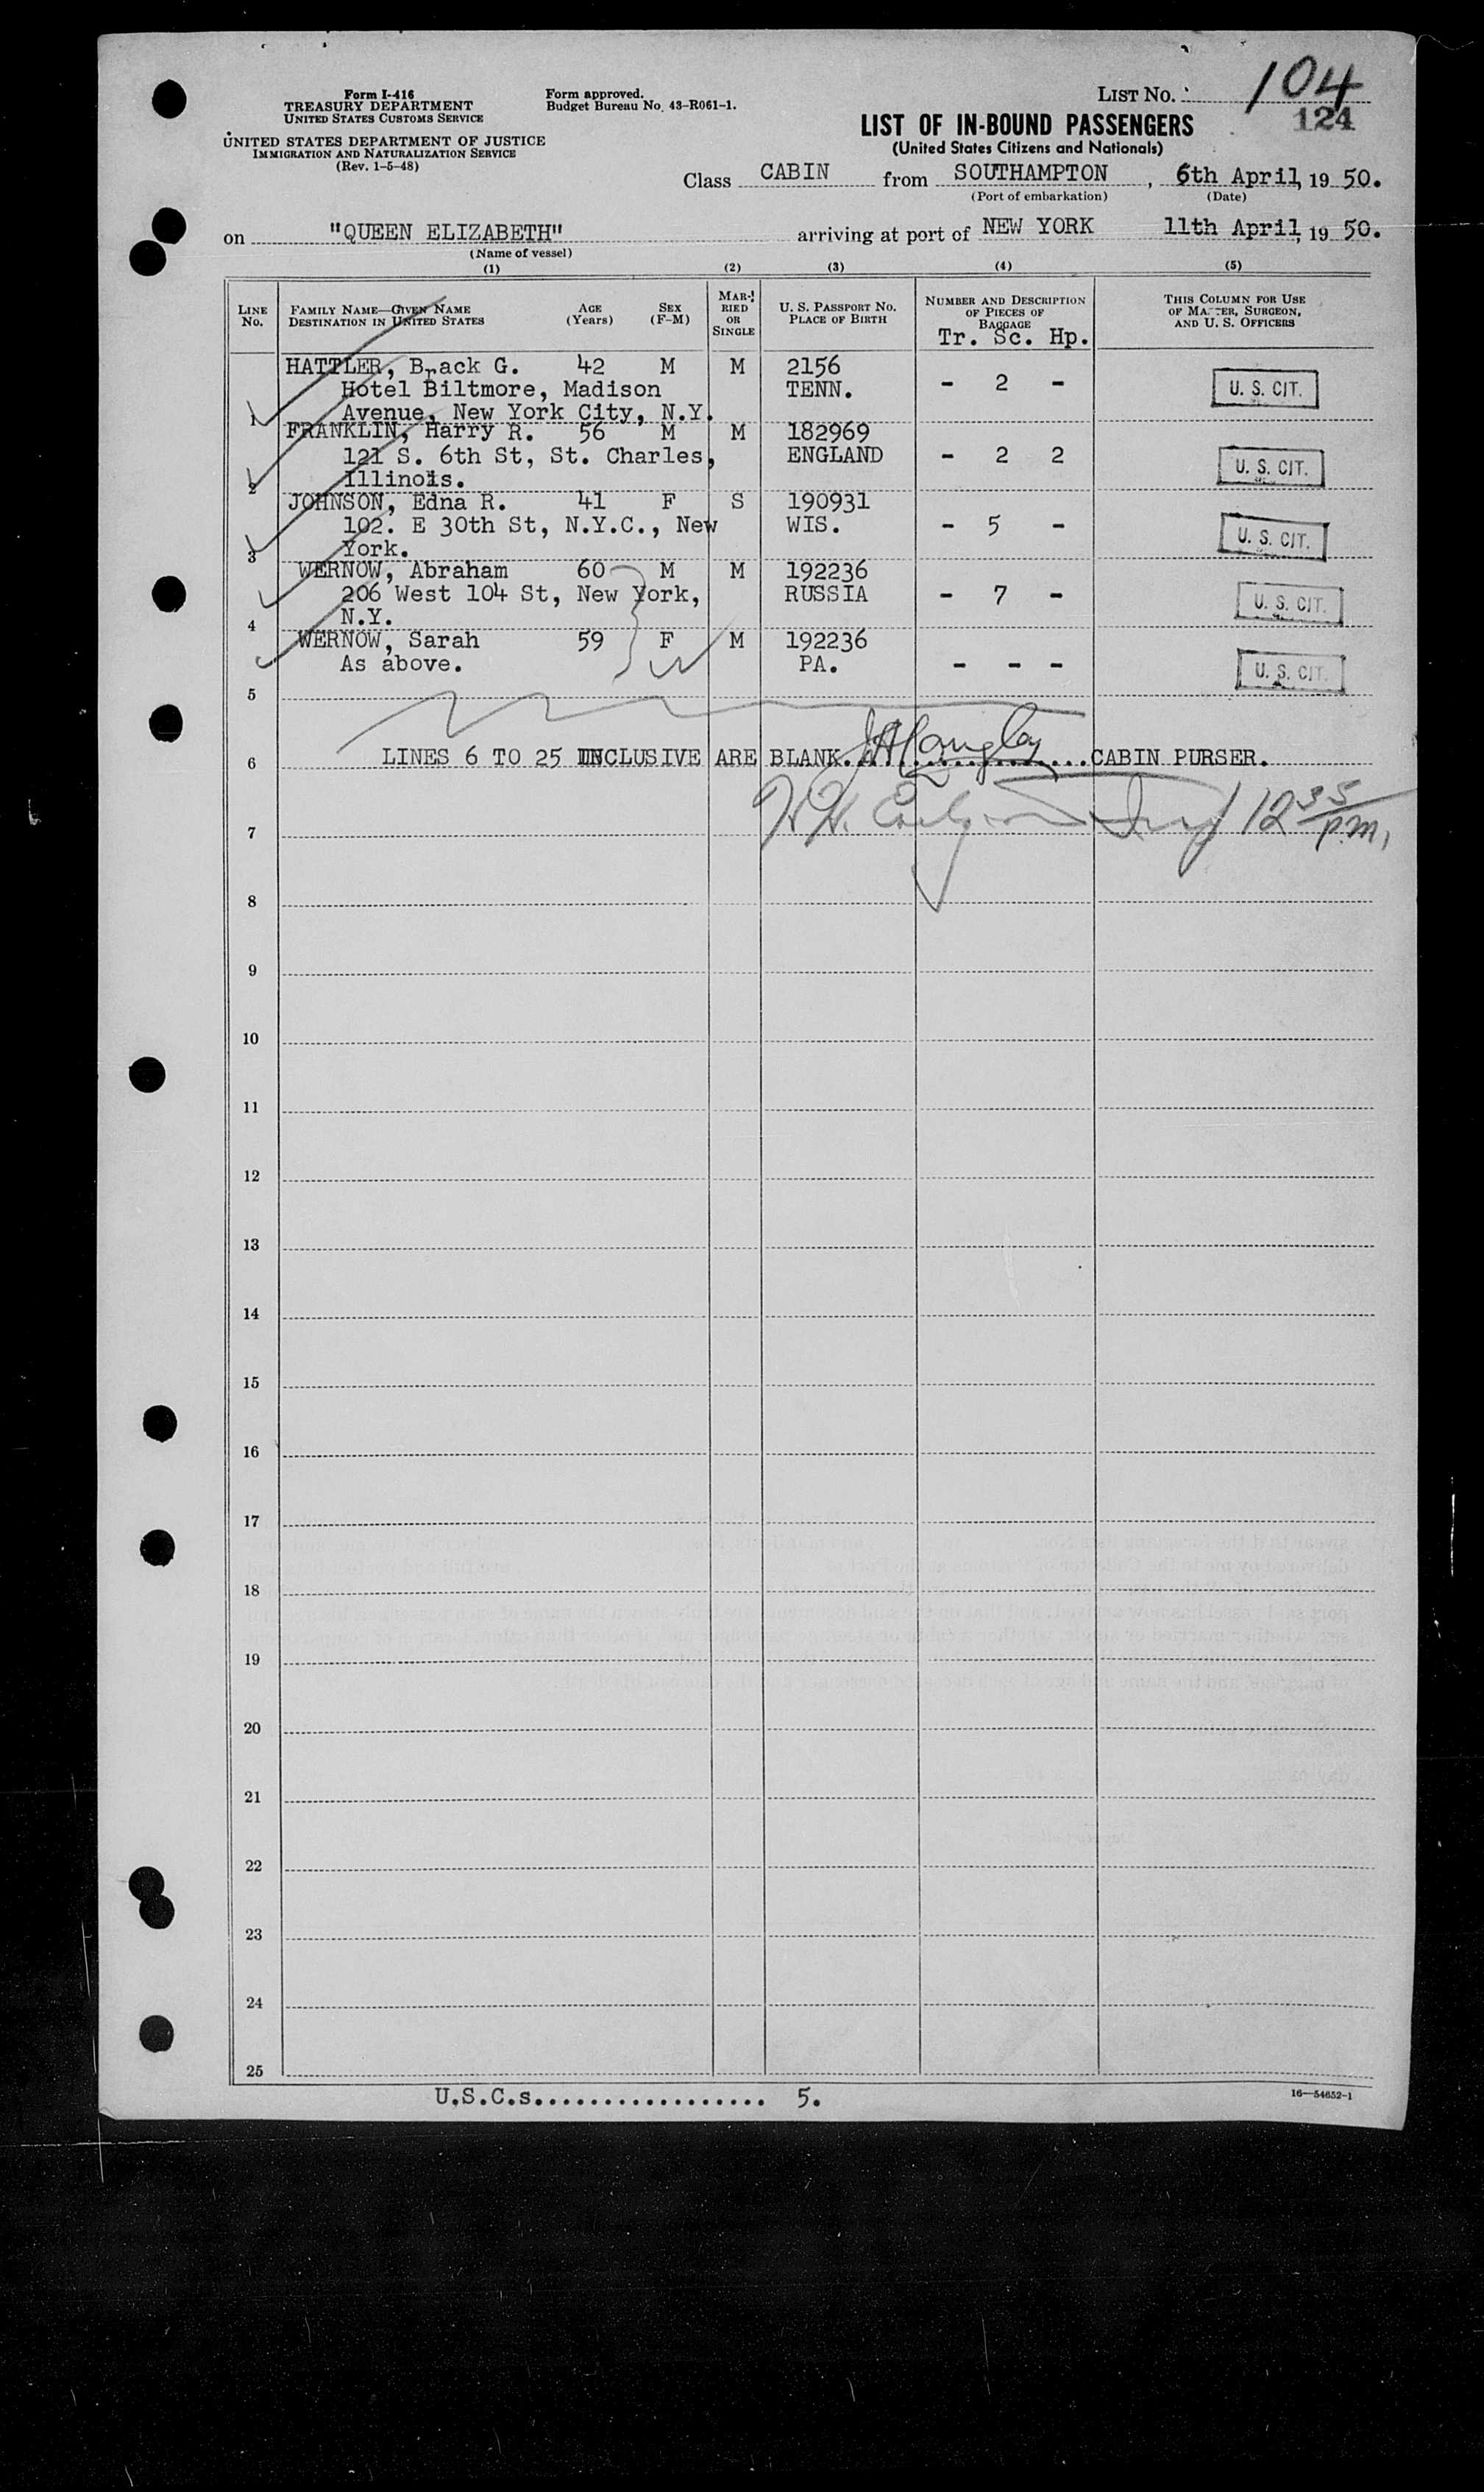 Form I-416
TREASURY DEPARTMENT
UNITED STATES CUSTOMS SERVICE
UNITED STATES DEPARTMENT OF JUSTICE
IMMIGRATION AND NATURALIZATION SERVICE
(Rev. 1-5-48)
Form approved.
Budget Bureau No. 43-R061-1.
LIST NO. 104
124
LIST OF IN-BOUND PASSENGERS
(United States Citizens and Nationals)
Class CABIN from SOUTHAMPTON, 6th April, 19 50.
(Port of embarkation) (Date)
on "QUEEN ELIZABETH" arriving at port of NEW YORK 11th April, 19 50.
(Name of vessel)
(1) (2) (3) (4) (5)
LINE NO.
FAMILY NAME—GIVEN NAME
DESTINATION IN UNITED STATES
AGE (Years)
SEX (F-M)
MARRIED OR SINGLE
U. S. PASSPORT NO.
PLACE OF BIRTH
NUMBER AND DESCRIPTION OF PIECES OF BAGGAGE
Tr. Sc. Hp.
THIS COLUMN FOR USE OF MASTER, SURGEON, AND U. S. OFFICERS
HATTLER, Brack G. 42 M M 2156
Hotel Biltmore, Madison TENN. - 2 - U. S. CIT.
1 Avenue, New York City, N.Y.
FRANKLIN, Harry R. 56 M M 182969
121 S. 6th St, St. Charles, ENGLAND - 2 2 U. S. CIT.
2 Illinois.
JOHNSON, Edna R. 41 F S 190931
102. E 30th St, N.Y.C., New WIS. - 5 - U. S. CIT.
3 York.
WERNOW, Abraham 60 M M 192236
206 West 104 St, New York, RUSSIA - 7 - U. S. CIT.
4 N.Y.
WERNOW, Sarah 59 F M 192236
As above. PA. - - - U. S. CIT.
5
6 LINES 6 TO 25 INCLUSIVE ARE BLANK. CABIN PURSER.
7 12 35 p.m.
8
9
10
11
12
13
14
15
16
17
18
19
20
21
22
23
24
25
U.S.C.s.................. 5.
16—54652-1